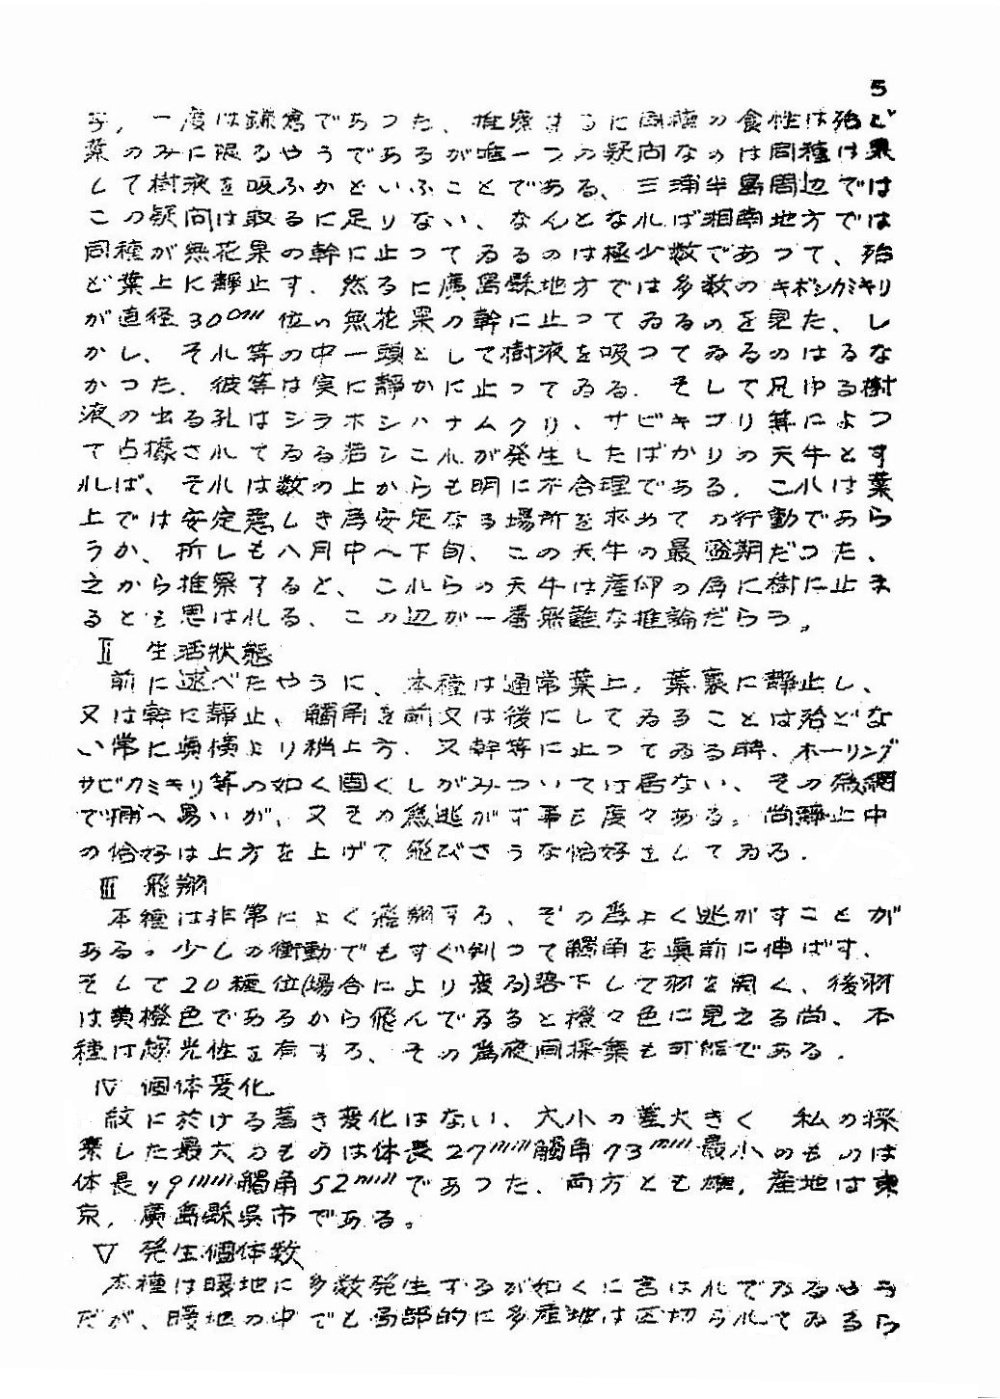 5
子，一度は鎌倉であつた、推察するに同種の食性は殆ど
葉のみに限るやうであるが唯一つの疑問なのは同種は果
して樹液を吸ふかどいふことである、三浦半島周辺では
この疑問は取るに足りない、なんとなれば湘南地方では
同種が無花果の幹に止つてゐるのは極少数であつて、殆
ど葉上に静止す．然るに廣島縣地方では多数のキボシカミキリ
が直径30cm位の無花果の幹に止つてゐるのを見た、し
かし、それ等の中一頭として樹液を吸つてゐるのはゐな
かつた．彼等は実に静かに止つてゐる．そして凡ゆる樹
液の出る孔はシラホシハナムクリ、サビキコリ等によつ
て占據されてゐる若シこれが発生したばかりの天牛とす
れば、それは数の上からも明に不合理である．これは葉
上では安定悪しき為安定なる場所を求めての行動であら
うか、折しも八月中へ下旬、この天牛の最盛期だつた、
之から推察すると、これらの天牛は産卵の為に樹に止ま
るとも思はれる、この辺が一番無難な推論だらう。
Ⅱ 生活狀態
前に述べたやうに、本種は通常葉上，葉裏に静止し、
又は幹に静止、觸角を前又は後にしてゐることは殆どな
い常に眞横より稍上方．又幹等に止つてゐる時、ホーリング
サビカミキリ等の如く固くしがみついては居ない、その為網
で捕へ易いが、又その為逃がす事も度々ある。尚静止中
の恰好は上方を上げて飛びさうな恰好をしてゐる．
Ⅲ 飛翔
本種は非常によく飛翔する、その為よく逃がすことが
ある。少しの衝動でもすぐ判つて觸角を眞前に伸ばす、
そして20糎位(場合により変る)落下して羽を開く、後羽
は黄橙色であるから飛んでゐると橙々色に見える尚、本
種は趨光性を有する、その為夜間採集も可能である．
Ⅳ 個体変化
紋に於ける著き変化はない、大小の差大きく 私の採
集した最大のものは体長27mm觸角73mm最小のものは
体長19mm觸角52mmであつた、両方とも雄，産地は東
京，廣島縣呉市である。
Ⅴ 発生個体数
本種は暖地に多数発生するが如くに言はれてゐるやう
だが、暖地の中でも局部的に多産地は区切られてゐるら